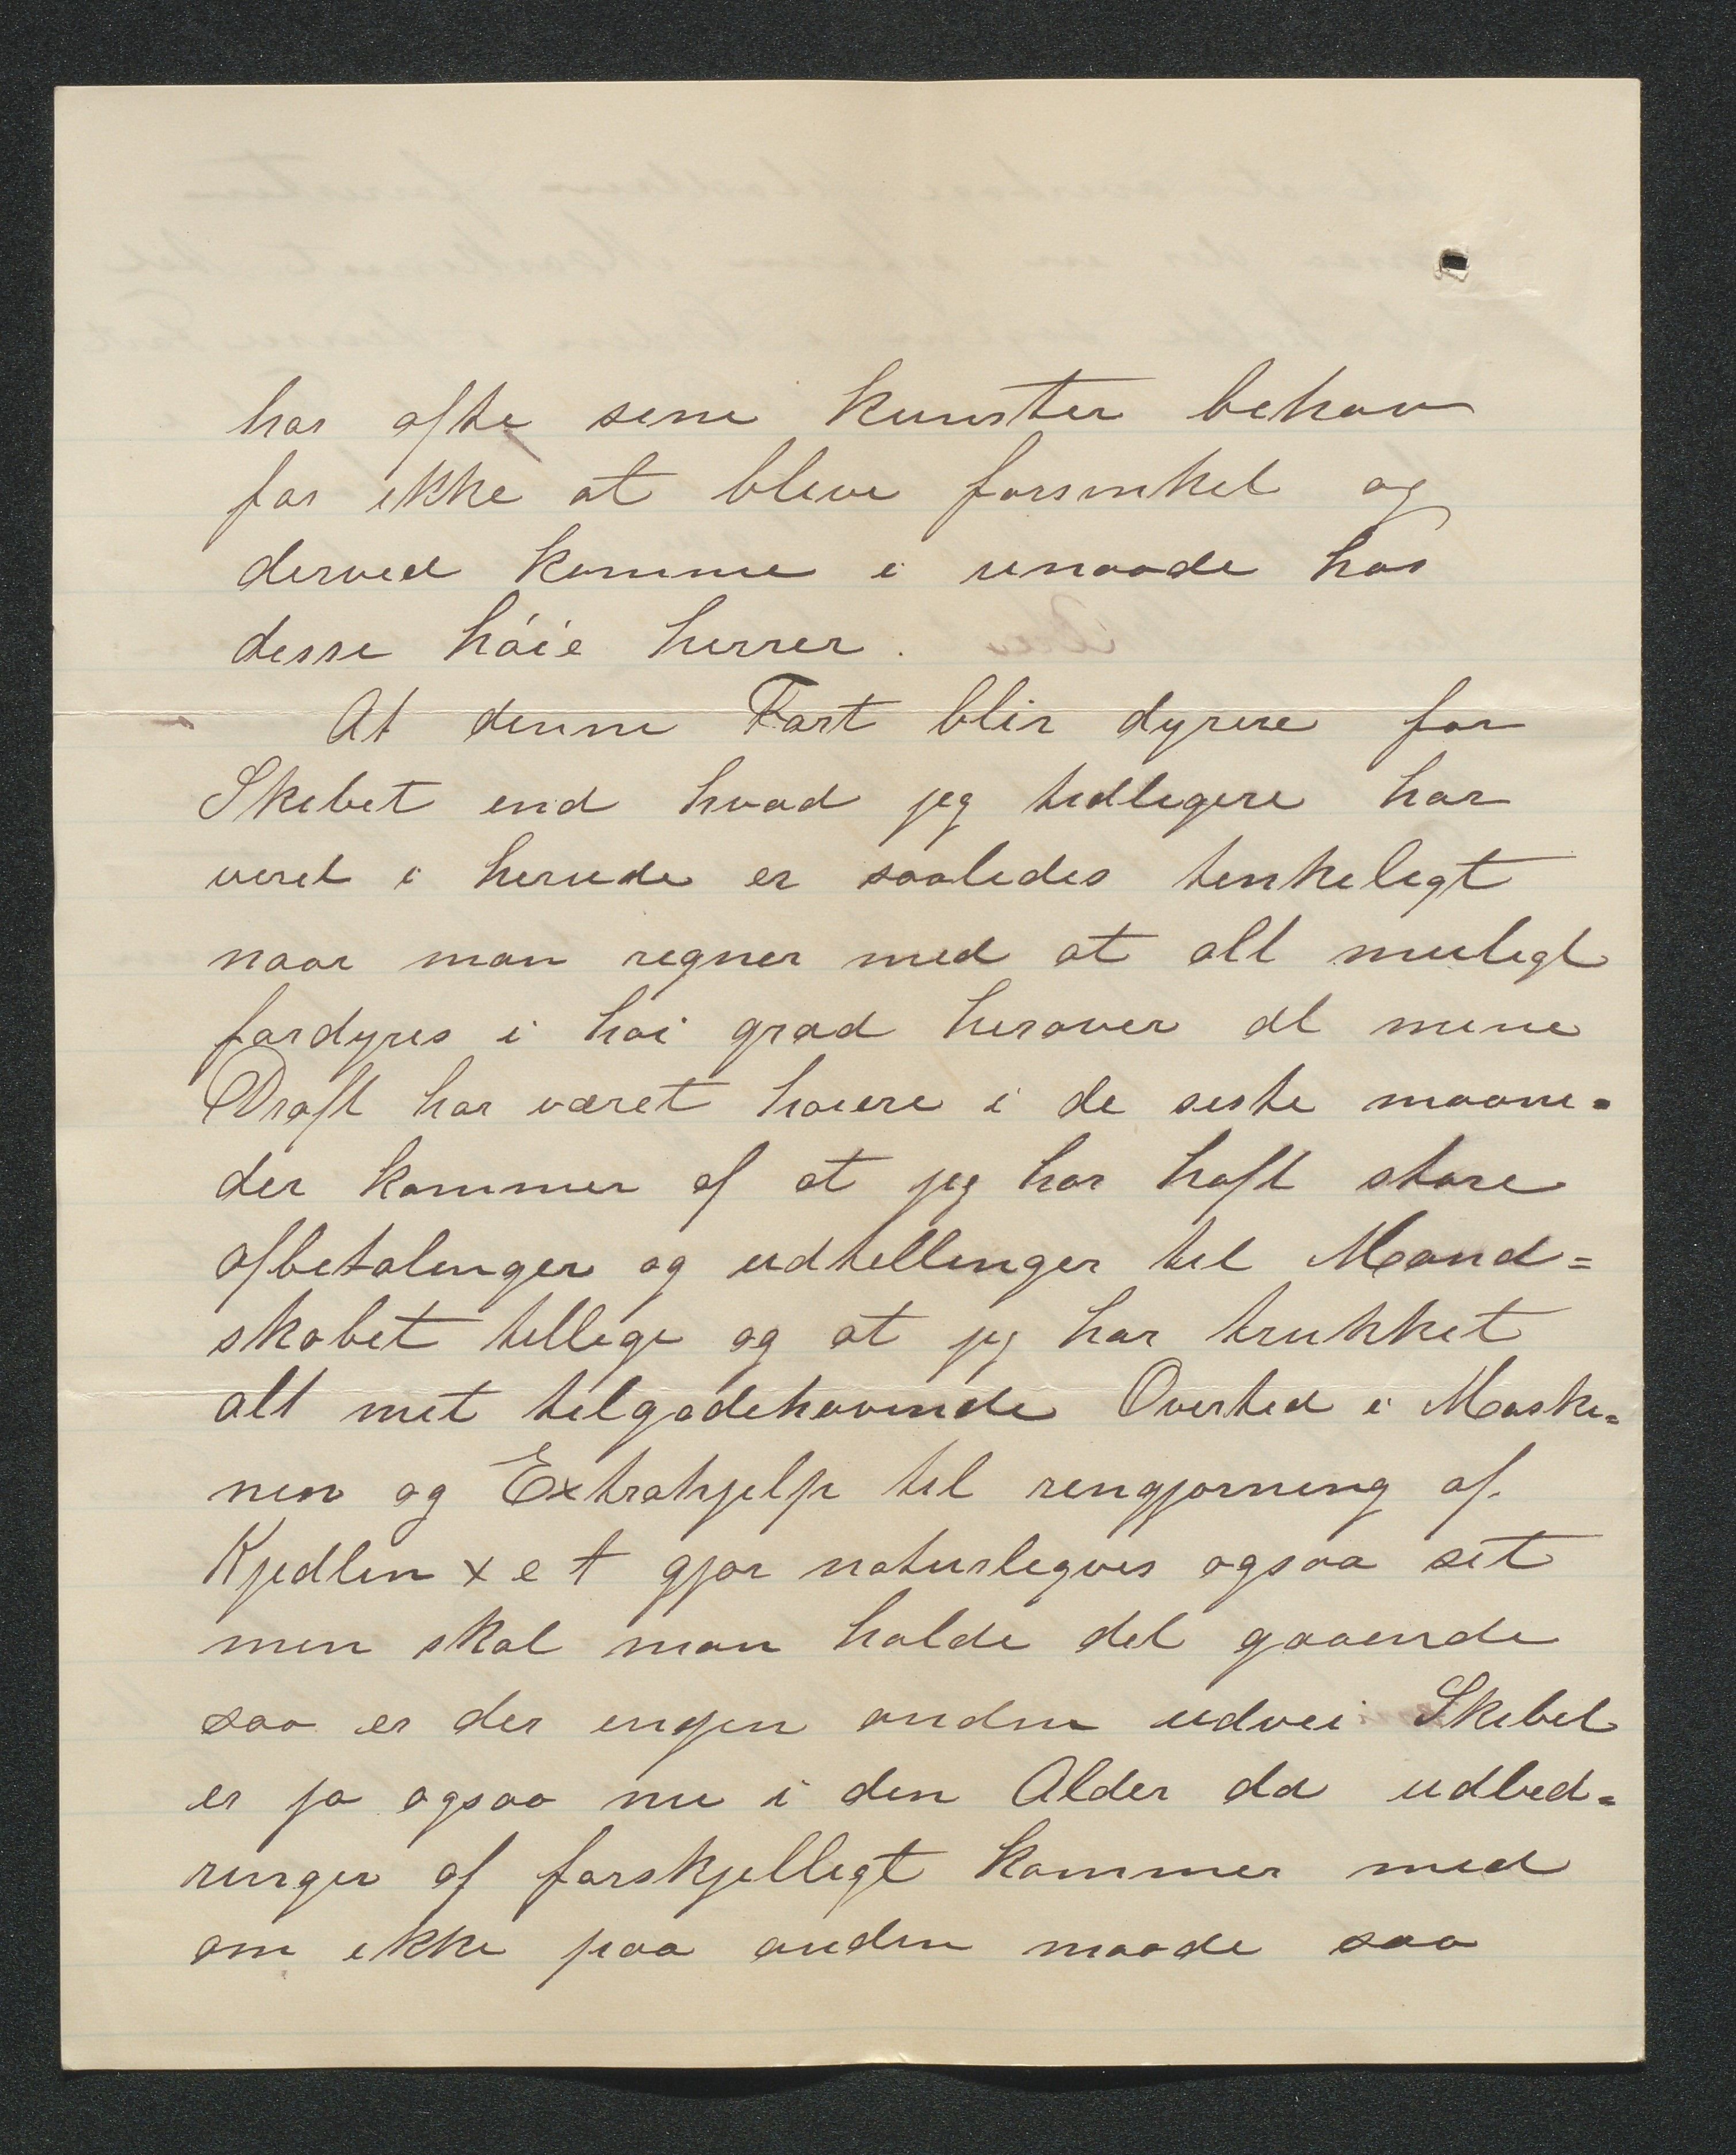 har ofte sine kunster behov
for ikke at blive forsinket og
derved komme i unaade hos
disse høie herrer.
At denne Fart blir dyrere for
Skibet end hvad jeg tidligere har
veret i herude er saaledes tenkeligt
naar man regner med at alt muligt
fordyres i høi grad herover at mine
Draft har været høiere i de siste maane=
der kommer af at jeg har haft store
afbetalinger og udtellinger til Mand=
skabet tillige og at jeg har trukket
alt mit tilgodehavende Overtid i Maski=
nen og Extrahjelp til rengjørning af
Kjedlen x e t gjør naturligvis ogsaa sit
men skal man holde det gaaende
saa er der ingen anden udvei Skibet
er ja ogsaa nu i den Alder da udbed=
ringer af forskjelligt kommer med
om ikke paa anden maade saa